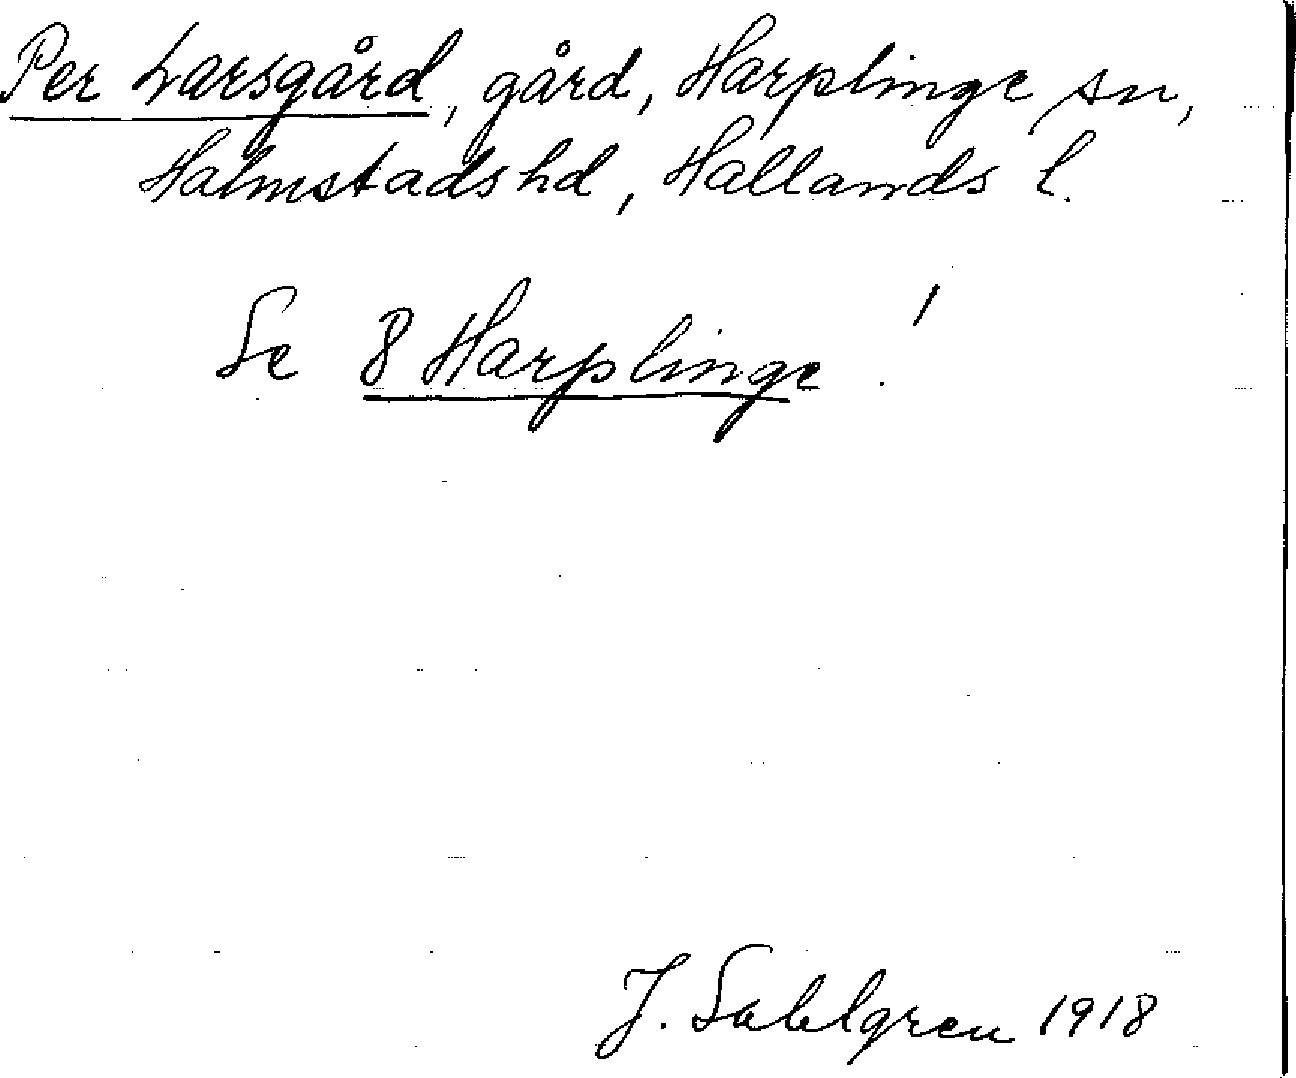 Per Larsgård, gård, Harplinge sn,
Halmstads hd, Hallands l.
Se 8 Harplinge!
J. Sahlgren 1918